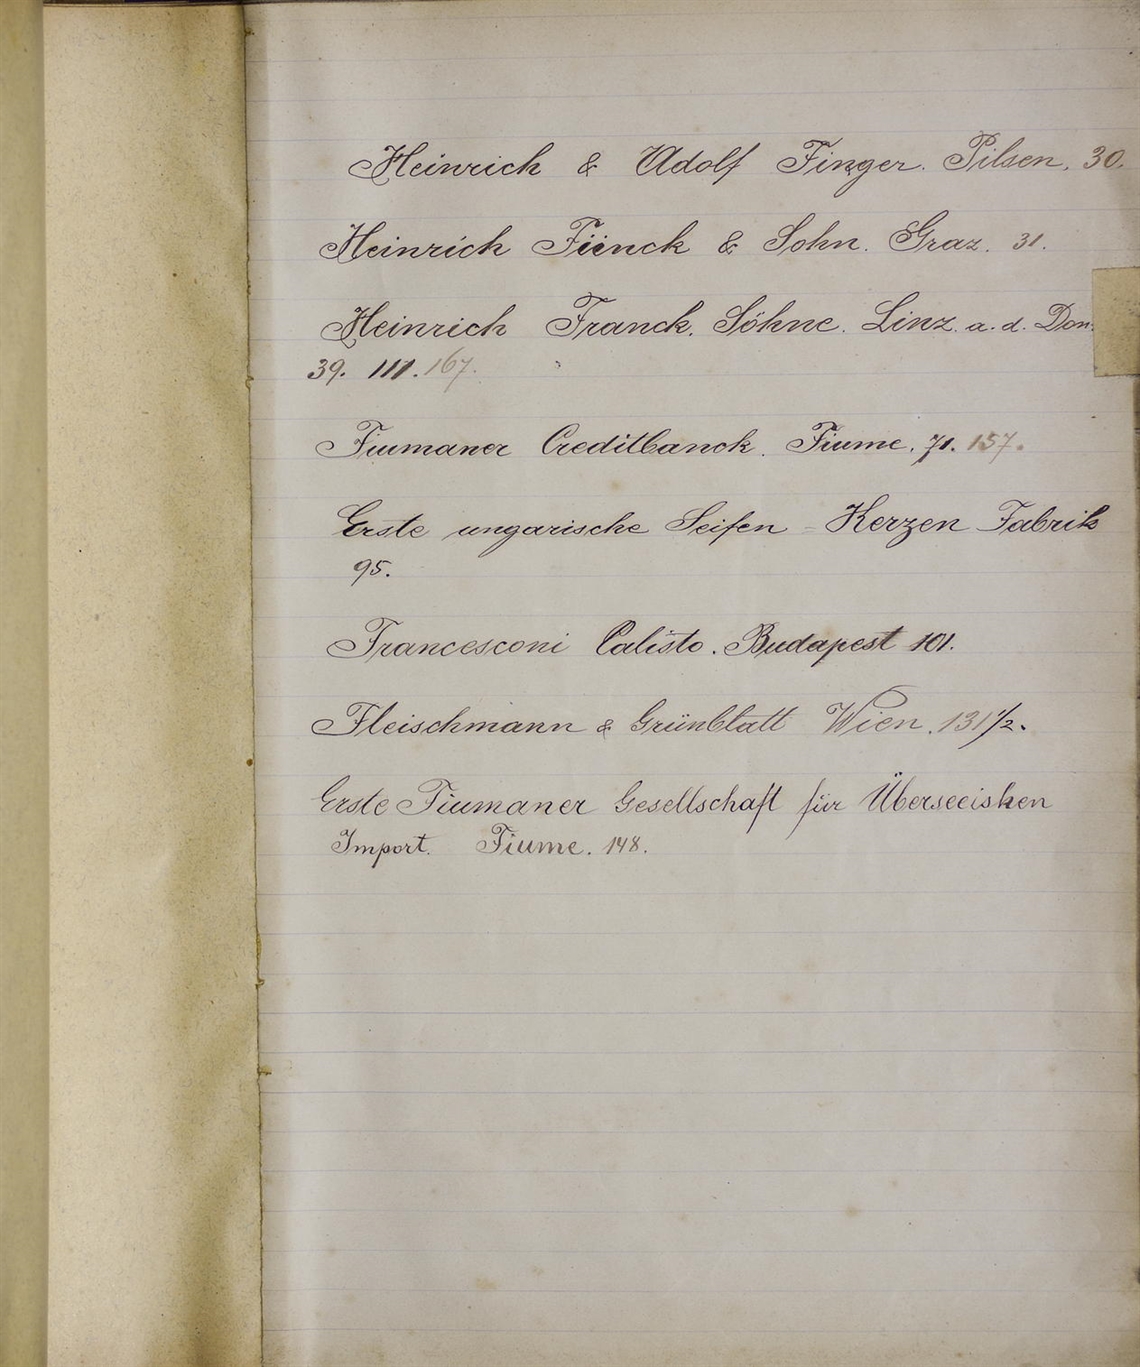 Heinrich & Adolf Finger. Pilsen. 30.
Heinrich & Sohn. Graz. 31.
Heinrich Franck. Söhne. Linz. a. d. Don.
39. 111. 167.
Fiumaner Creditbanck. Fiume. 71. 157.
Erste ungarische Seifen - Kerzen Fabrik
95.
Francesconi Calisto. Budapest 101.
Fleischmann & Grünblatt Wien. 131 1/2.
Erste Fiumaner Gesellschaft für Überseeisken
Import. Fiume. 148.